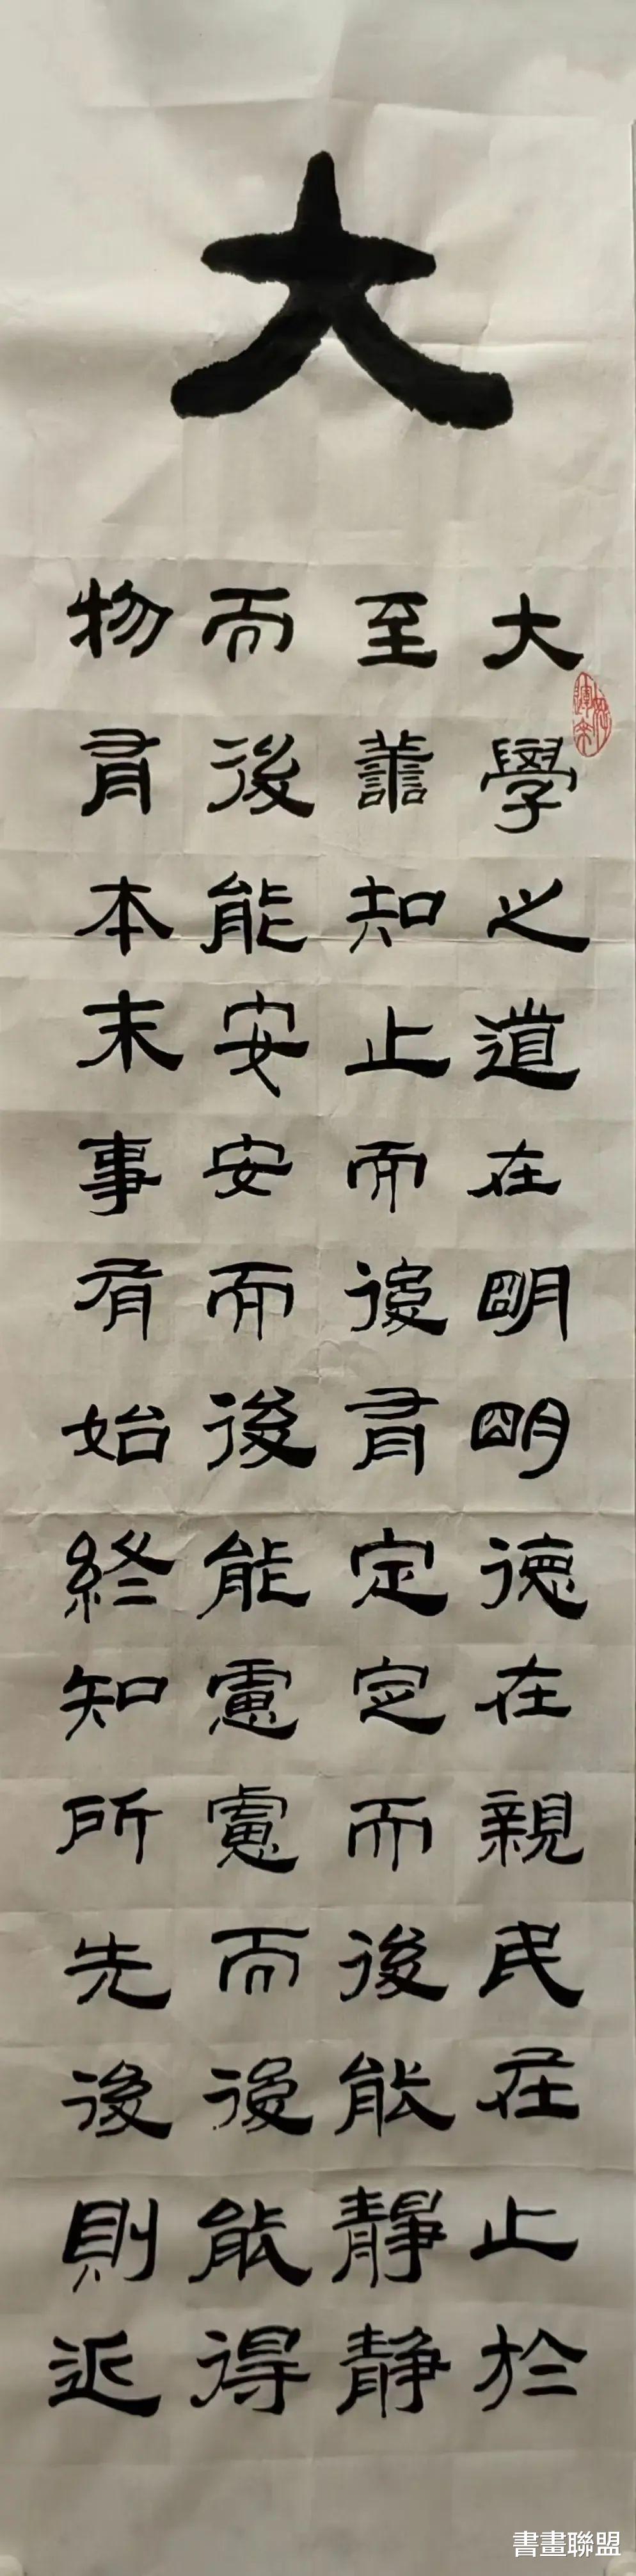 大
大學之道在明明德在親民在止於
至善知止而後有定定而後能靜靜
而後能安安而後能慮慮而後能得
物有本末事有始終知所先後則近
書畫聯盟